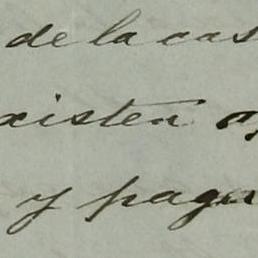 de la cas
xisten
y paga